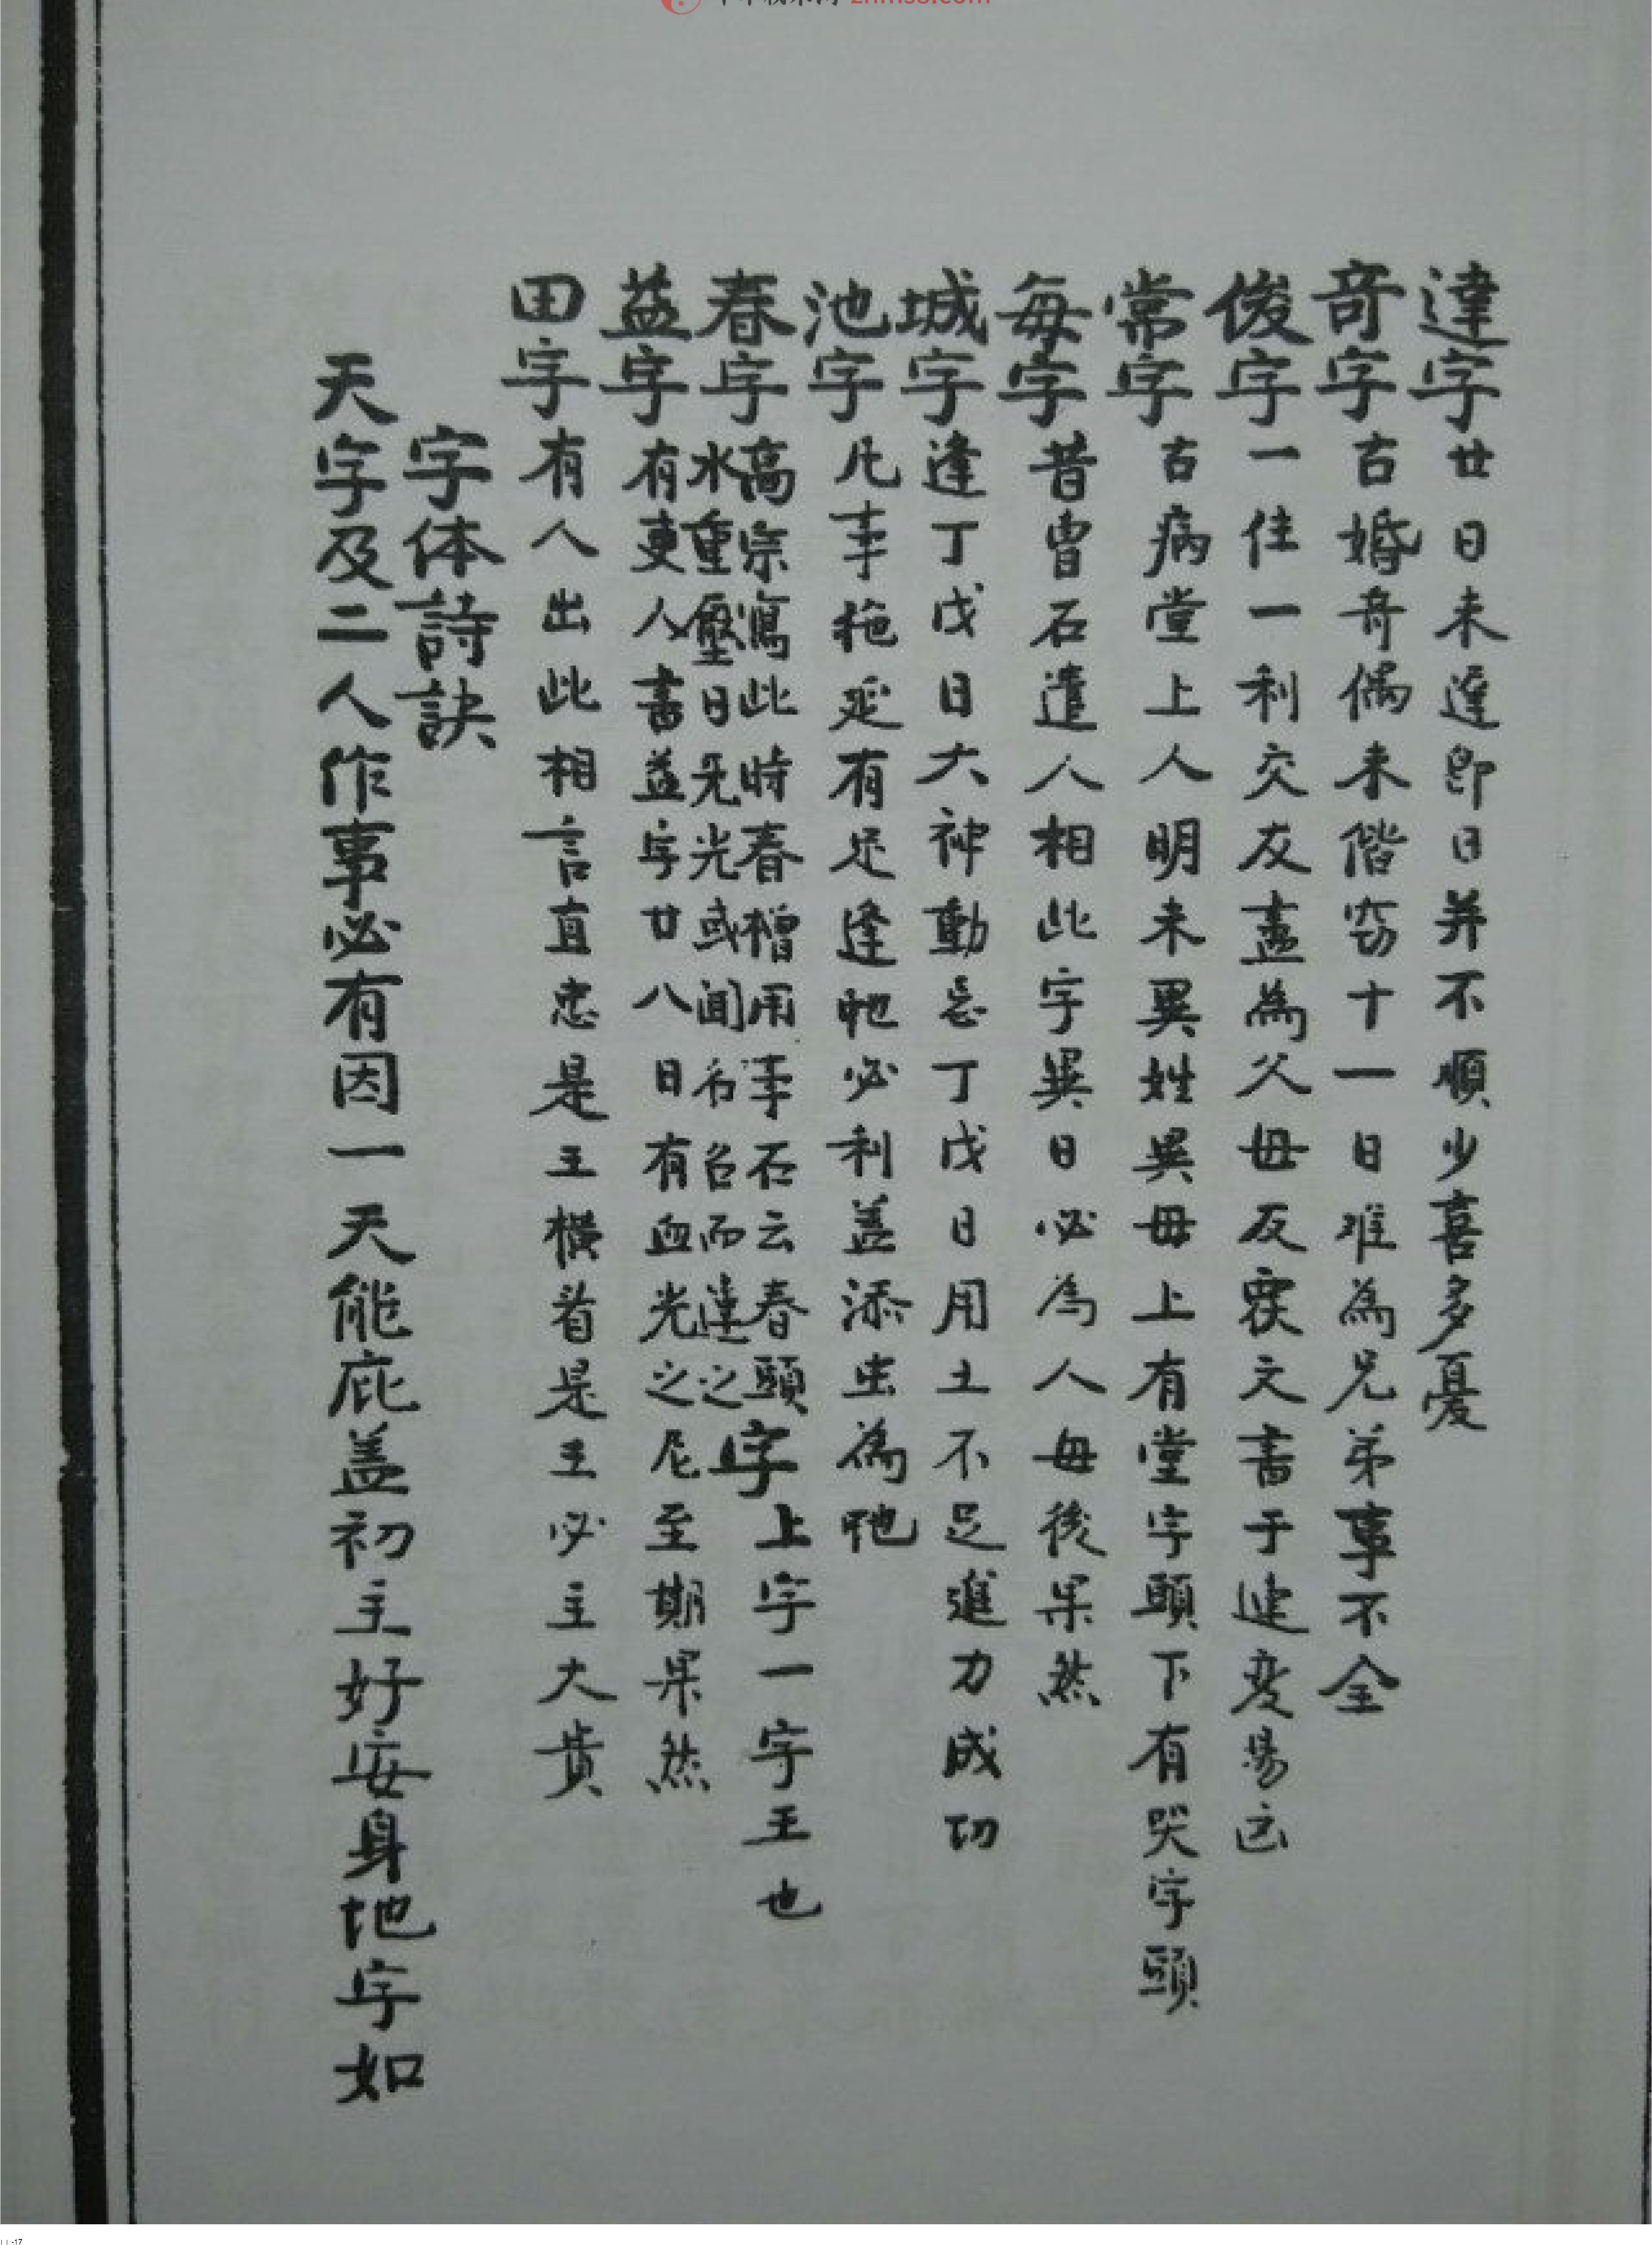 達字廿日未達即日并不順少喜多憂
奇字古婚奇偶未偕窃十一日难為兄弟事不全
俊字一住一利交友盡為父母反䆠文書于迍变易迄
常字古病堂上人明未異姓異母上有堂字頭下有哭字頭
每字昔曾石遣人相此字異日必為人母後果然
城字逢丁戊日大神動忌丁戊日用土不足進力成功
池字凡事拖延有足逢虵必利盖添虫為虵
春字高宗寫此時春檜用事石云春頭字上字一字王也
水重壓日无光或聞名召而連之
益字有吏人書益字廿八日有血光之厄至期果然
田字有人出此相言直忠是王横看是王必主大贵
字体詩訣
天字及二人作事必有因一天能庇盖初主好安身地字如